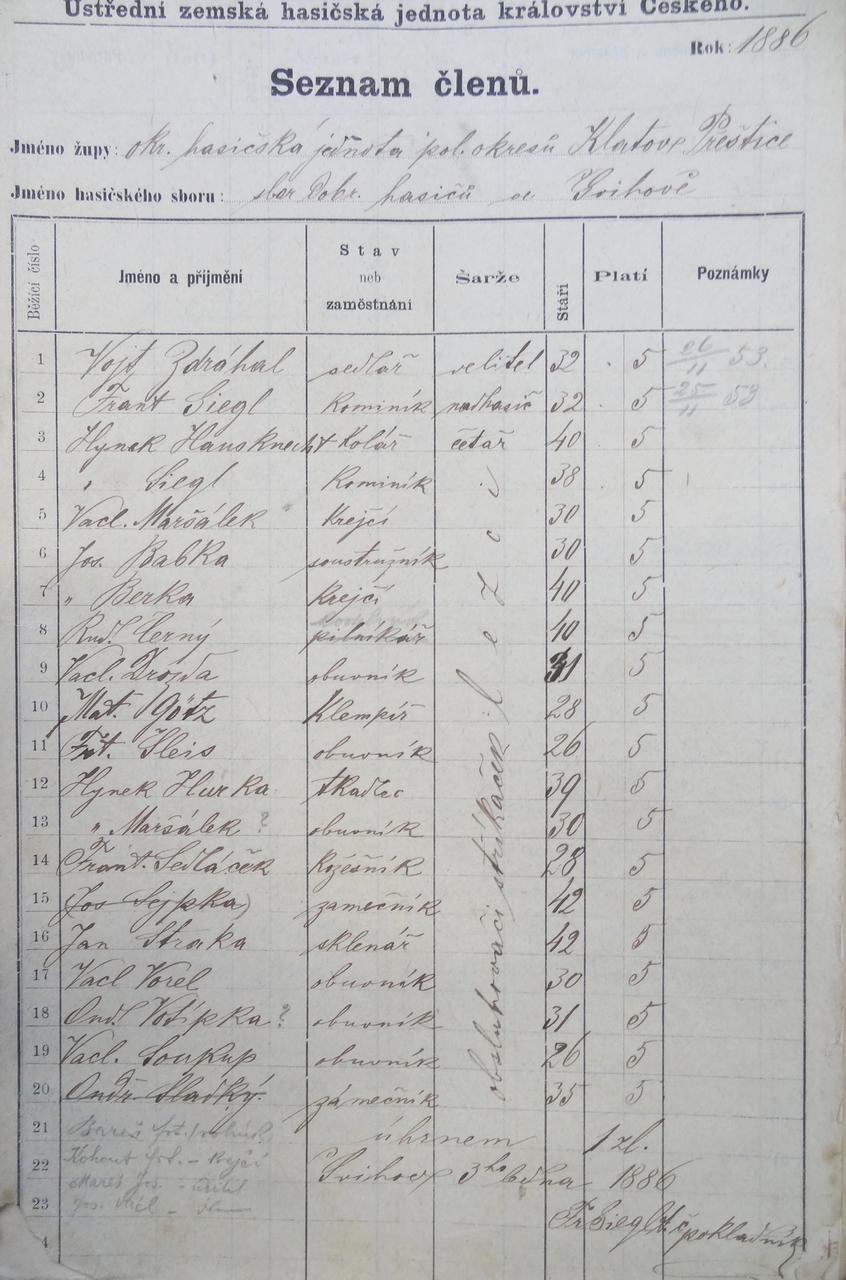 Ústřední zemská hasičská jednota království Českého.
Rok: 1886
Seznam členů.
Jméno župy: okr. hasičská jednota pol. okresů Klatovy Přeštice
Jméno hasičského sboru: sbor dobr. hasičů ve Švihově
Běžící číslo Jméno a příjmění Stav neb zaměstnání Šarže Stáří Platí Poznámky
1 Vojt Zdráhal sedlář velitel 32 5 53.
2 Frant Siegl Kominík nadhasič 32 5 25/11 53
3 Hynek Hausknecht Kolář četař 40 5
4 " Siegl Kominík 38 5
5 Vacl. Maršálek Krejčí 30 5
6 Jos. Babka soustružník 30 5
7 " Berka Krejčí 40 5
8 Rud. Černý pilníkář 40 5
9 Vacl. Drozda obuvník 31 5
10 Mat. Götz Klempíř 28 5
11 Frt. Šleis obuvník 26 5
12 Hynek Hůrka tkadlec 39 5
13 " Maršálek ? obuvník 30 5
14 Frant. Sedláček Kožešník 28 5
15 Jos Sejpka zámečník 42 5
16 Jan Straka sklenář 42 5
17 Vacl Vorel obuvník 30 5
18 Ond. Votípka ? obuvník 31 5
19 Vacl. Soukup obuvník 26 5
20 Ondř. Sladký. zámečník 35 5
lezci
obsluhovači stříkaček
21 Bareš frt. úhrnem 1 zl.
22 Kohout frt. - Krejčí Švihov 3ho ledna 1886
Mareš Jos. - učitel
23 Jos. Fr Siegl pokladník
4